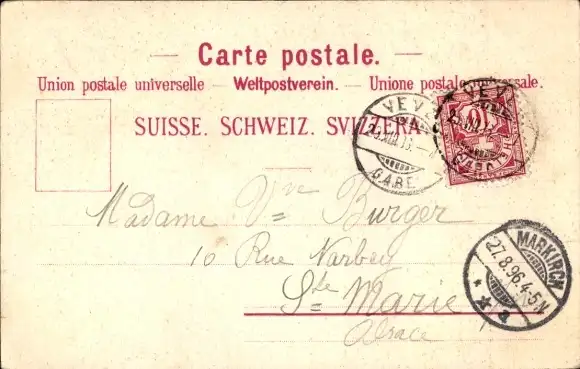 Carte postale.
Union postale universelle – Weltpostverein. – Unione postale universale.
SUISSE. SCHWEIZ. SVIZZERA.
VEV
GARE
10
HELVETIA
Madame Vve Burger
10 Rue Narbey
Ste Marie
Alsace
MARKIRCH
27.8.96.4-5N
* * a